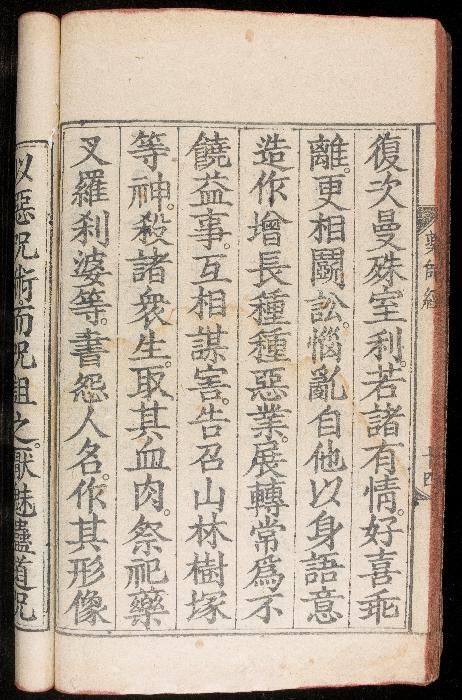 復次曼殊室利。若諸有情。好喜乖
離。更相鬭訟。惱亂自他。以身語意
造作增長種種惡業。展轉常爲不
饒益事。互相謀害。告召山林樹塚
等神。殺諸衆生。取其血肉。祭祀藥
叉羅刹婆等。書怨人名。作其形像
以惡呪術而呪詛之。厭魅蠱道呪
藥師經
十四